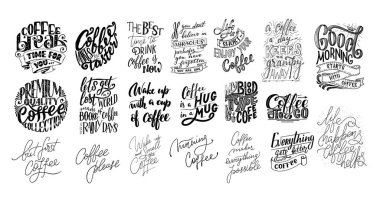 Coffee
Break
TIME FOR
YOU
Coffee
now
THE BEST
Time to
DRINK
Coffee
is
NOW
you don't
believe in
MIRACLES
have
forgotten
you are
Life
ENJOY
Coffee
Coffee
a day
KEEPS
the
grumpy
away
Good
MORNING
STARTS
WITH COFFEE
PREMIUM
QUALITY
COFFEE
COLLECTION
Let's get
LOST
WORLD
made of
BOOKS
and
RAINY DAYS
Wake up
with a cup
of coffee
Coffee
is a
HUG
in a
MUG
BIRD
Coffee
TO GO
Everything
GETS BETTER
with
COFFEE
but first
Coffee
Coffee
please
Wake up
Coffee
Morning
Coffee
Coffee
makes
everything
possible
life
happens
coffee
helps